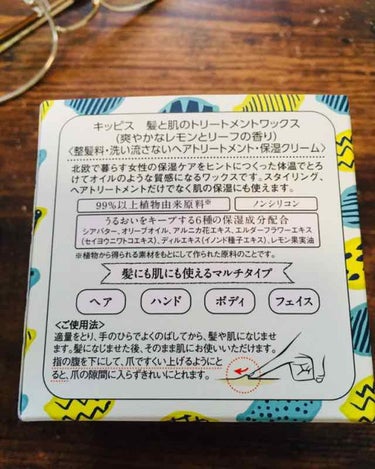 キッピス 髪と肌のトリートメントワックス
(爽やかなレモンとリーフの香り)
〈整髪料・洗い流さないヘアトリートメント・保湿クリーム〉
北欧で暮らす女性の保湿ケアをヒントにつくった体温でとろ
けてオイルのような質感になるワックスです。スタイリング、
ヘアトリートメントだけでなく肌の保湿にも使えます。
99%以上植物由来原料※ ノンシリコン
うるおいをキープする6種の保湿成分配合
シアバター、オリーブオイル、アルニカ花エキス、エルダーフラワーエキス
(セイヨウニワトコエキス)、ディルエキス(イノンド種子エキス)、レモン果実油
※植物から得られる素材をもとにして作られた原料のことです。
髪にも肌にも使えるマルチタイプ
ヘア ハンド ボディ フェイス
<ご使用法>
適量をとり、手のひらでよくのばしてから、髪や肌になじませ
ます。髪になじませた後、そのまま肌にお使いいただけます。
指の腹を下にして、爪ですくい上げるようにと
ると、爪の隙間に入らずきれいにとれます。